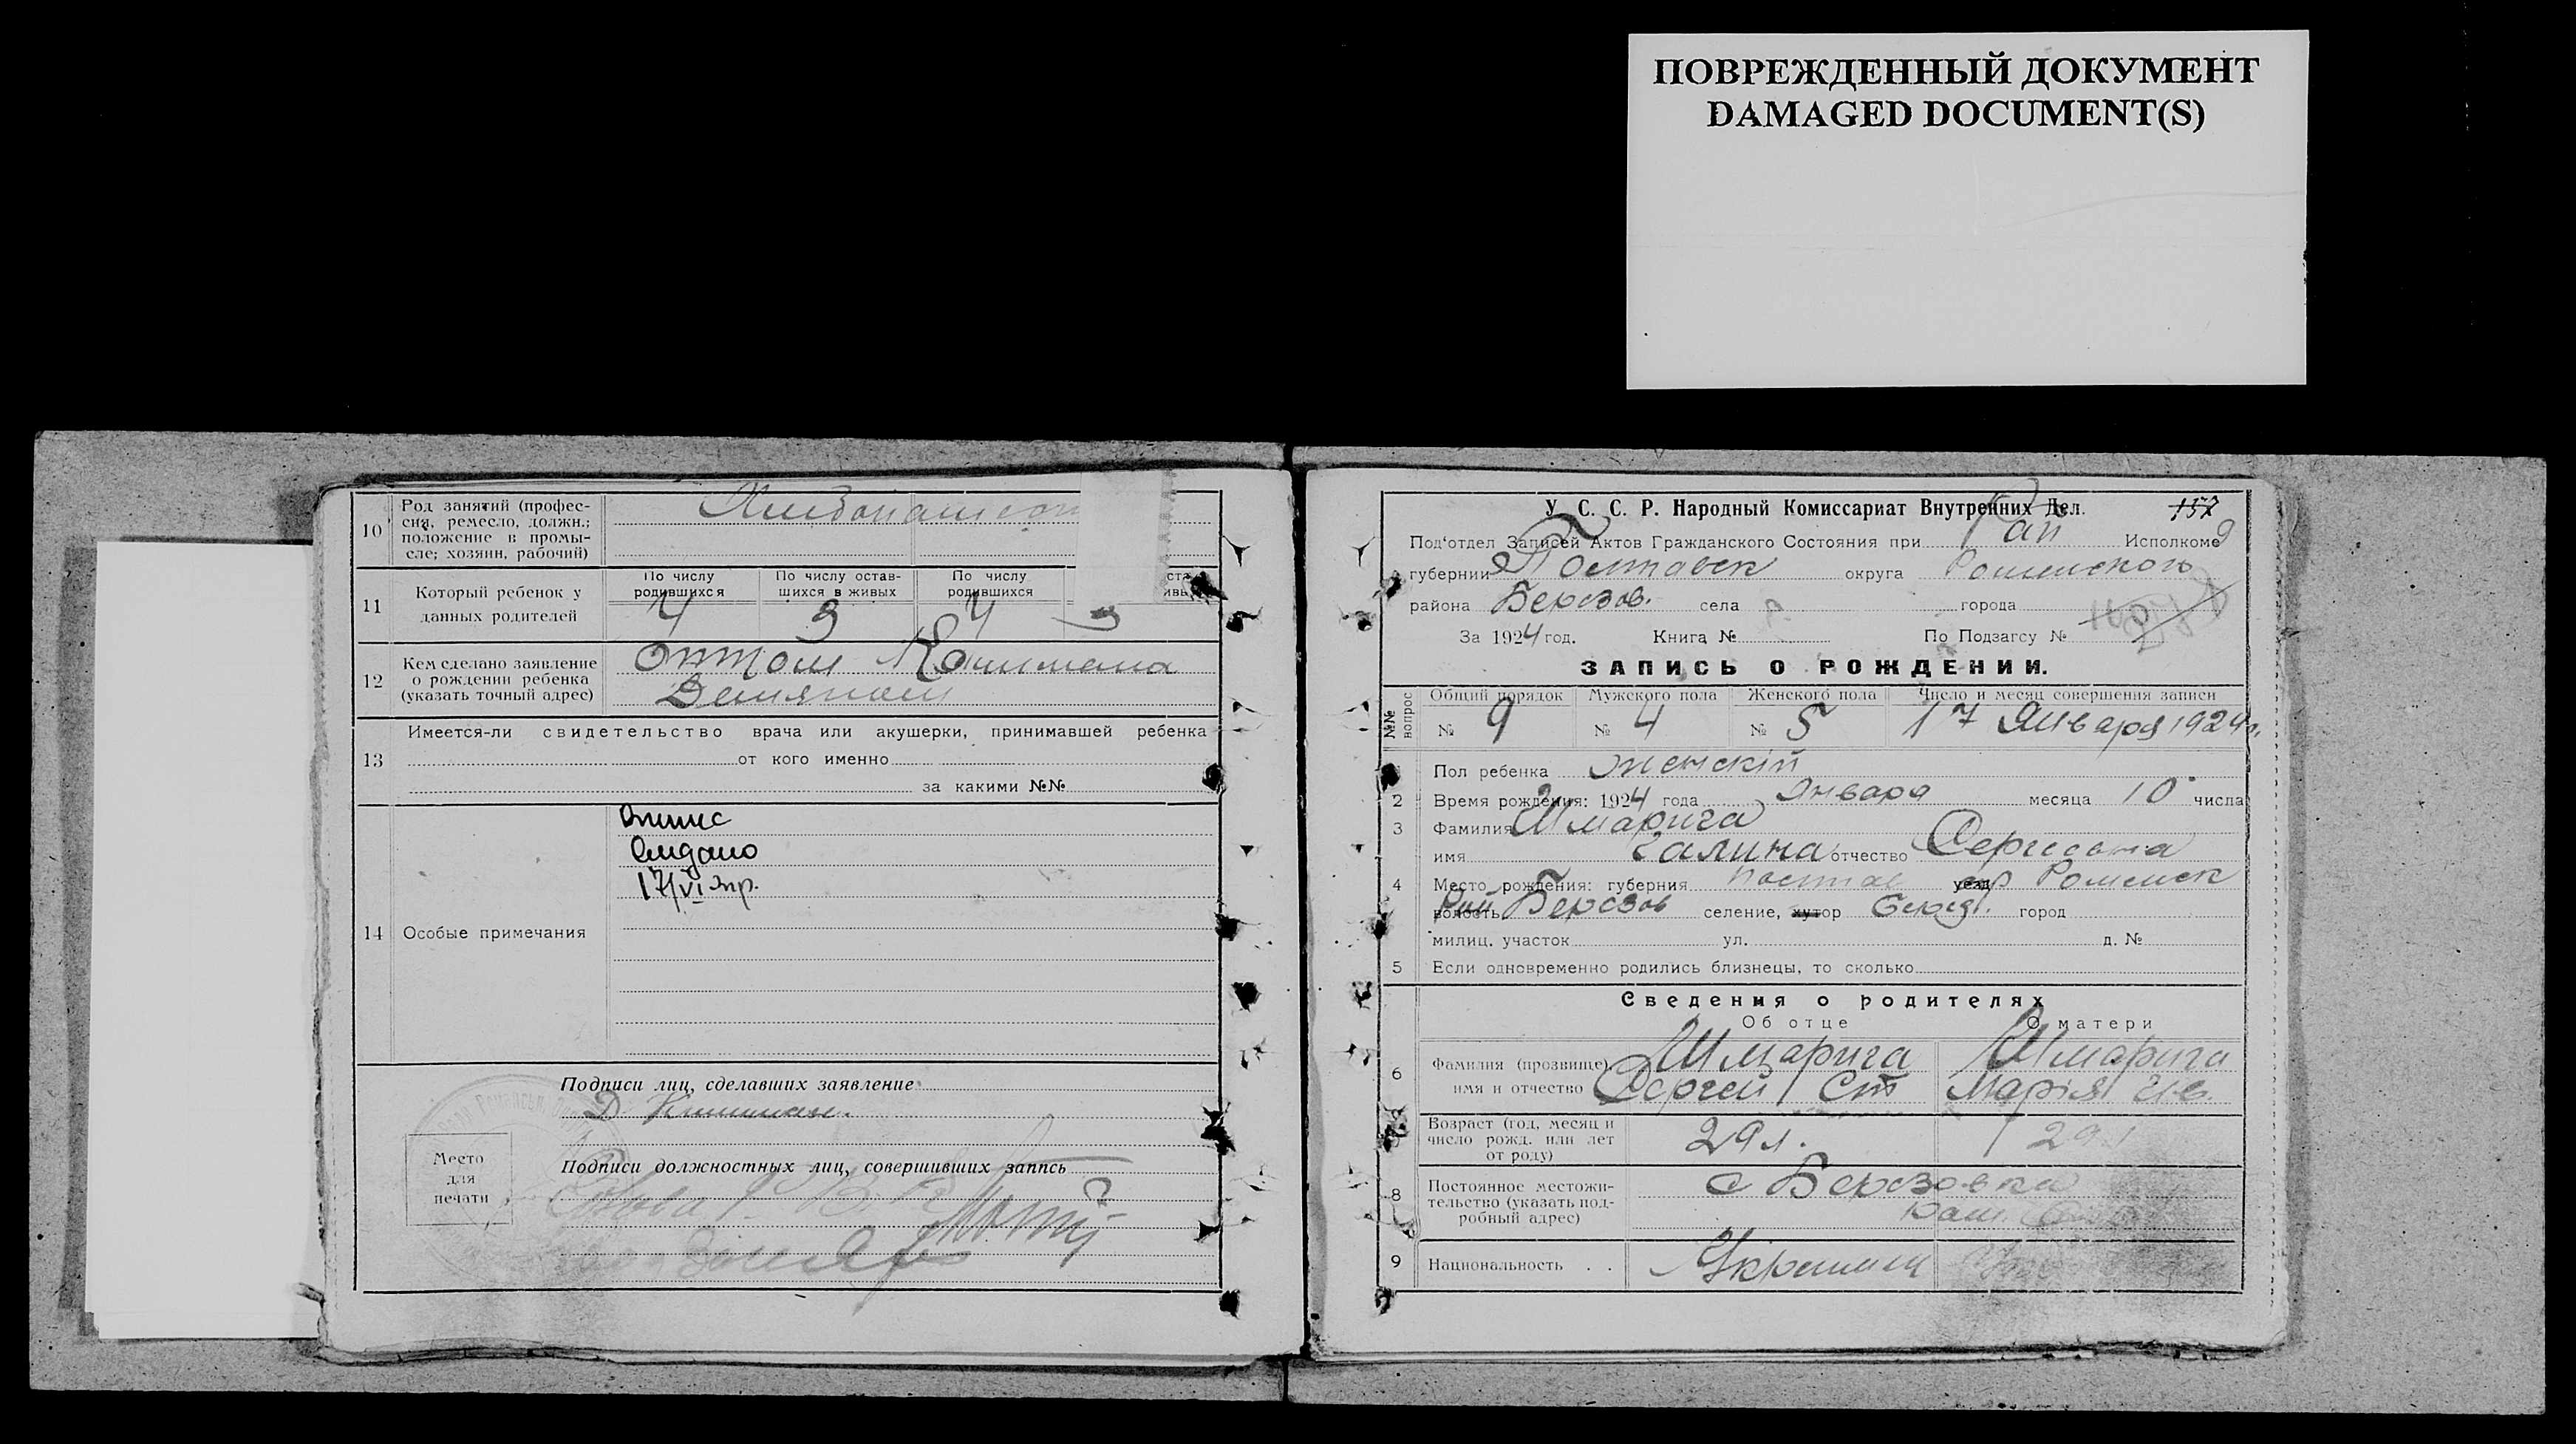 ПОВРЕЖДЕННЫЙ ДОКУМЕНТ
DAMAGED DOCUMENT(S)
10 Род занятий (профес-
сия, ремесло, должн.;
положение в промы-
сле; хозяин, рабочий)
11 Который ребенок у
данных родителей
По числу
родившихся
По числу остав-
шихся в живых
По числу
родившихся
4 3 4 3
12 Кем сделано заявление
о рождении ребенка
(указать точный адрес)
Отцом
Демяном
13 Имеется-ли свидетельство врача или акушерки, принимавшей ребенка
от кого именно
за какими №№
14 Особые примечания
17/VI
Подписи лиц, сделавших заявление
Д.
Подписи должностных лиц, совершивших запись
Место
для
печати
У. С. С. Р. Народный Комиссариат Внутренних Дел.
157
Под'отдел Записей Актов Гражданского Состояния при Рай Исполкоме
губернии Полтавск округа Роменского
района Березов. села города
За 1924 год. Книга № По Подзагсу №
ЗАПИСЬ О РОЖДЕНИИ.
№№ вопрос
Общий порядок Мужского пола Женского пола Число и месяц совершения записи
№ 9 № 4 № 5 17 Января 1924 г.
Пол ребенка женскій
2 Время рождения: 1924 года Января месяца 10 числа
3 Фамилия Шмарига
имя Галина отчество Сергеевна
4 Место рождения: губерния Полтав уезд Роменск
волость Рай Березов селение, хутор город
милиц. участок ул. д. №
5 Если одновременно родились близнецы, то сколько
Сведения о родителях
Об отце О матери
6 Фамилия (прозвище), имя и отчество
Шмарига Шмарига
Сергей Ст Марія Ив.
Возраст (год, месяц и
число рожд. или лет
от роду)
29 л. 29
8 Постоянное местожи-
тельство (указать под-
робный адрес)
с Березовка
9 Национальность . . Украинец